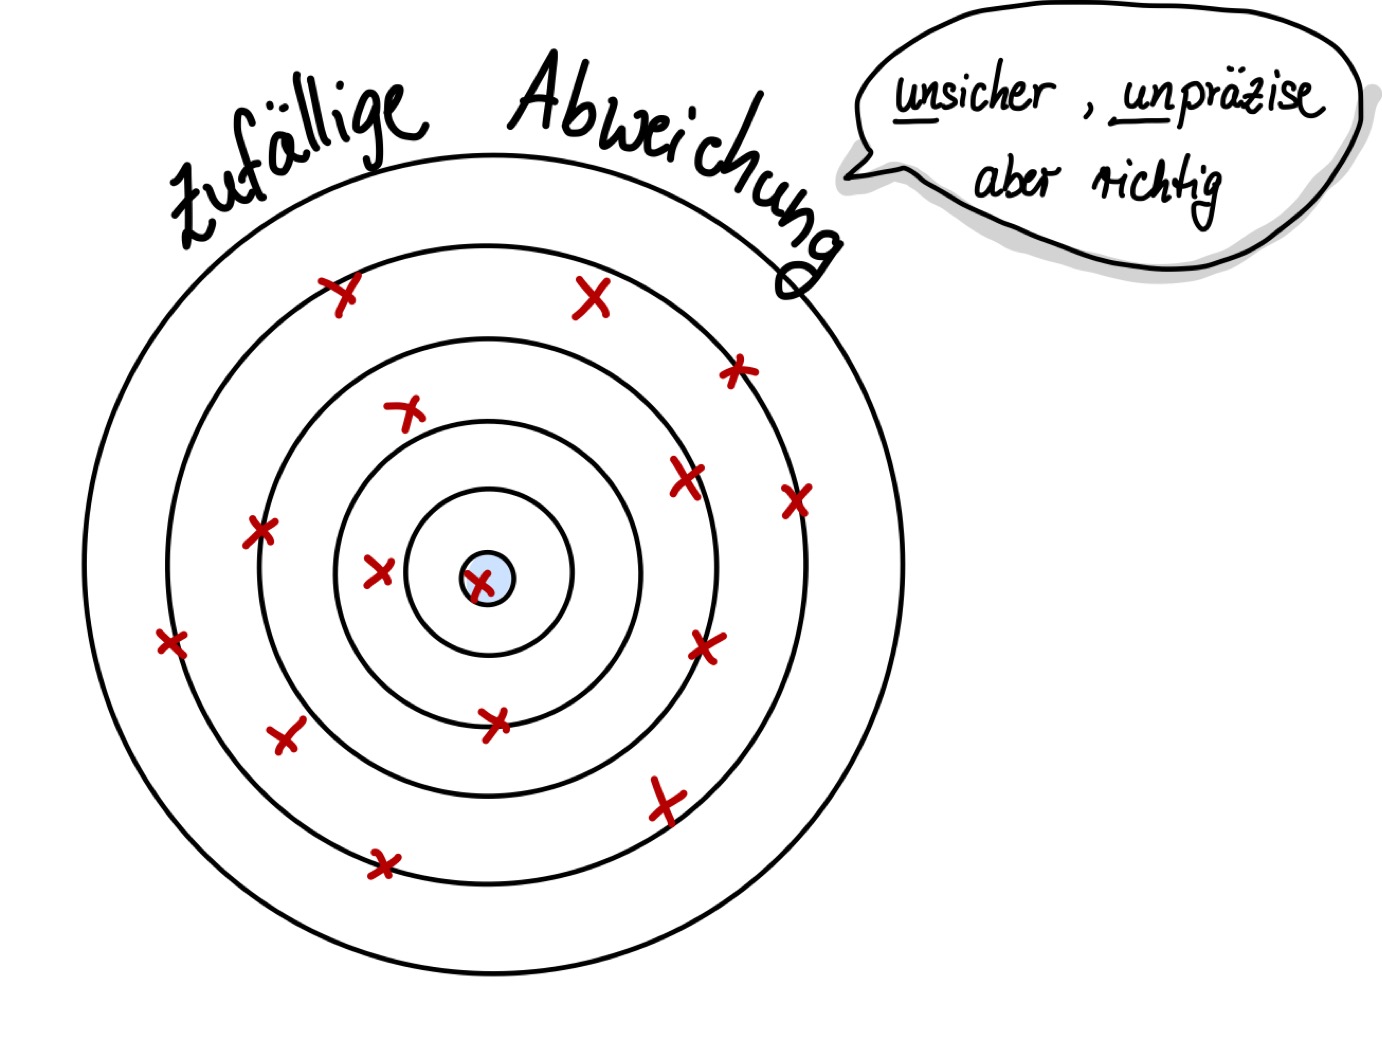 Zufällige Abweichung
unsicher, unpräzise
aber richtig